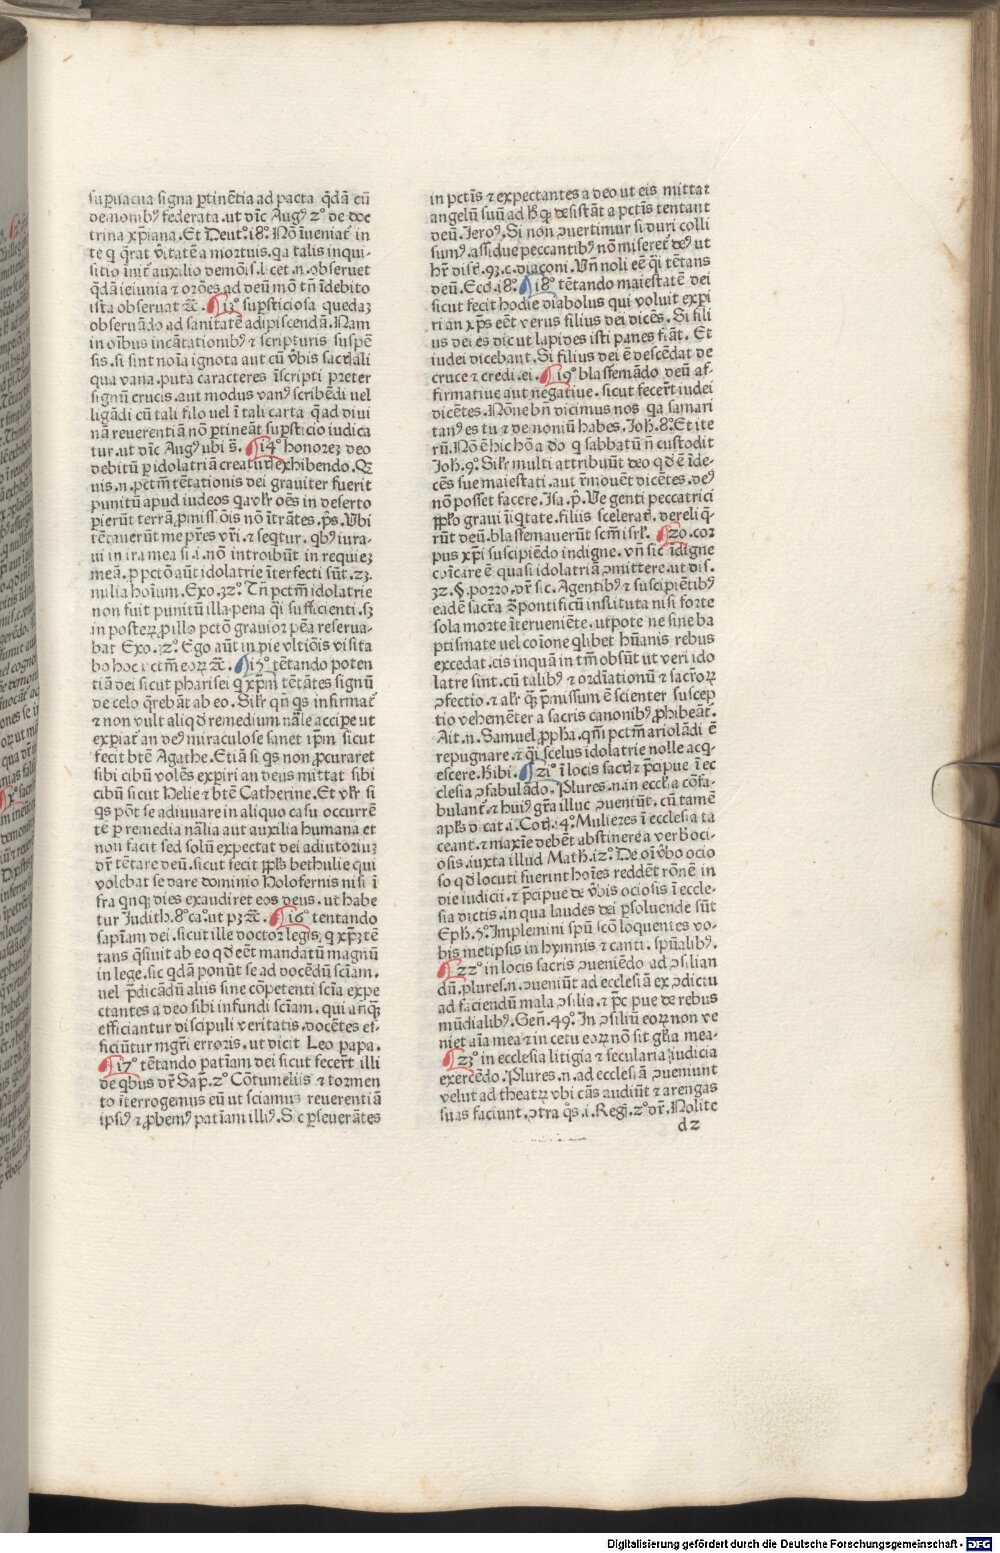 suꝑuacua signa ꝑtinētia ad pacta q̄dā cū
demonibꝰ federata.ut dic̄ Augꝰ 2° de doc
trina xp̄iana.Et Deut°.18°.Nō īueniat̄ in
te q q̄rat v̄itatē a mortuis.qa talis inqui⸗
sitio init̄ auxilio demōis.l.cet.n.obseruet
q̄dā ieiunia ⁊ orōes ad deū mō tn̄ īdebito
ista obseruat ⁊c̄. ¶13° suꝑsticiosa quedaꝫ
obseruādo ad sanitatē adipiscendā.Nam
in oībus incātationibꝰ ⁊ scripturis suspē
sis.si sint noīa ignota aut cū v̄bis sacris ali
qua vana.puta caracteres īscripti preter
signū crucis.aut modus vanꝰ scribēdi uel
ligādi cū tali filo uel ī tali carta q̄ ad diui
nā reuerentiā nō ꝑtineāt suꝑsticio iudica
tur.ut dic̄ Augꝰ ubi s̄. ¶14° honoreꝫ deo
debitū ꝑ idolatriā creature exhibendo.Q
uis.n.pctm̄ tētationis dei grauiter fuerit
punitū apud iudeos qa vl̄r oēs in deserto
ꝑierūt terrā ꝓmissiōis nō ītrātes.ps̄.Vbi
tētauerūt me pr̄es vr̄i.⁊ seqtur.qbꝰ iura⸗
ui in ira mea si.i.nō introibūt in requieꝫ
meā.ꝓ pctō aūt idolatrie īterfecti sūt.23.
milia hoīum.Exo.32°.Tn̄ pctm̄ idolatrie
non fuit punitū illa pena q̄i sufficienti.sꝫ
in posteꝝ ꝓ illo pctō grauior pēa reserua⸗
bat Exo.32°.Ego aūt in die vltiōis visita
bo hoc pctm̄ eoꝝ ⁊c̄. ¶15° tētando poten
tiā dei sicut pharisei q xp̄m tētātes signū
de celo q̄rebāt ab eo.Sil̄r qn̄ qs infirmat̄
⁊ non vult aliqđ remedium nāle accipe ut
expiat̄ an deꝰ miraculose sanet ip̄m sicut
fecit btē Agathe.Etiā si qs non ꝓcuraret
sibi cibū volēs expiri an deus mittat sibi
cibū sicut Helie ⁊ btē Catherine.Et vl̄r si
qs pōt se adiuuare in aliquo casu occurrē
te ꝑ remedia nālia aut auxilia humana et
non facit sed solū expectat dei adiutoriuꝫ
dr̄ tētare deū.sicut fecit ppl̄s bethulie qui
volebat se dare dominio Holofernis nisi ī
fra qnqꝫ dies exaudiret eos deus.ut habe
tur Judith.8° ca°.ut pꝫ ⁊c̄. ¶16° tentando
sapīam dei.sicut ille doctor legis.q xp̄ꝫ tē
tans q̄siuit ab eo qđ eēt mandatū magnū
in lege.sic qdā ponūt se ad docēdū sciam.
uel p̄dicādū aliis sine cōpetenti scīa expe
ctantes a deo sibi infundi sciam.qui anqꝫ
efficiantur discipuli veritatis.docētes ef⸗
ficiūtur mgr̄i erroris.ut dicit Leo papa.
¶17° tētando patiam dei sicut fecer̄t illi
de qbus dr̄ Sap̄.2° Cōtumeliis ⁊ tormen
to īterrogemus eū ut sciamus reuerentiā
ipsiꝰ ⁊ ꝓbemꝰ patīam illiꝰ.Sic ꝑseuerātes
in pctīs ⁊ expectantes a deo ut eis mittat
angelū suū ad h̄ qꝫ desistāt a pctīs tentant
deū.Jeroꝰ.Si non ↄuertimur si duri colli
sumꝰ.assidue peccantibꝰ nō miseret̄ deꝰ ut
hr̄ dist̄.93.c.diaconi.Vn̄ noli eē q̄i tētans
deū.Ecc̄i.18°. ¶18° tētando maiestatē dei
sicut fecit hodie diabolus qui voluit expi
ri an xp̄s eēt verus filius dei dicēs.Si fili
us dei es dic ut lapides isti panes fiāt. Et
iudei dicebant.Si filius dei ē descēdat de
cruce ⁊ credi.ei. ¶19° blasfemādo deū af⸗
firmatiue aut negatiue.sicut fecer̄t iudei
dicētes.Nōne bn̄ dicimus nos qa samari
tanꝰ es tu ⁊ demoniū habes.Joh.8°.Et ite
rū.Nō ē hic hō a deo q sabbatū n̄ custodit
Joh.9°.Sil̄r multi attribuūt deo qđ ē īde⸗
cēs sue maiestati.aut r̄mouēt dicētes.deꝰ
nō posset facere.Isa.p°.Ve genti peccatrici
ppl̄o graui īiqtate.filiis scelerat̄.dereliq̄⸗
rūt deū.blasfemauerūt scm̄ isrl̄. ¶20.cor
pus xp̄i suscipiēdo indigne.vn̄ sic īdigne
coīcare ē quasi idolatriā ↄmittere.ut dis.
32.§.porro.dr̄ sic.Agentibꝰ ⁊ suscipiētibꝰ
eadē sacr̄a ꝯ pontificū instituta nisi forte
sola morte īterueniēte.utpote ne sine ba
ptismate uel coīone qlibet hūanis rebus
excedat.eis inquā in tm̄ obsūt ut veri ido
latre sint.cū talibꝰ ⁊ ordīationū ⁊ sacroꝝ
ↄfectio.⁊ al̄r qꝫ ꝑmissum ē scienter suscep
tio vehemēter a sacris canonibꝰ ꝓhibeāt̄.
Ait.n.Samuel ꝓpha.qm̄ pctm̄ ariolādi ē
repugnare.⁊ q̄i scelus idolatrie nolle acq⸗
escere.Hibi. ¶21° ī locis sacris ⁊ p̄cipue ī ec
clesia ↄfabulādo.Plures.n.an eccl̄ia cōfa⸗
bulant̄.⁊ huiꝰ gr̄a illuc ↄueniūt.cū tamē
apl̄s dicat.i.Cori.14°.Mulieres ī ecclesia ta
ceant.⁊ maxīe debēt abstinere a verbo ci⸗
osis.iuxta illud Math.12°.De oī v̄bo ocio
so qđ locuti fuerint hoīes reddēt rōnē in
die iudicii.⁊ p̄cipue de v̄bis ociosis ī eccle⸗
sia dictis.in qua laudes dei ꝑsoluende sūt
Eph.5°.Implemini spū scō loquentes vo⸗
bis metipsis in hymnis ⁊ canti.spūalibꝰ.
¶22° in locis sacris ↄueniēdo ad ↄsilian
dū.plures.n.ↄueniūt ad ecclesiā ex ↄdictu
ad faciendū mala ↄsilia.⁊ p̄cipue de rebus
mūdialibꝰ.Gen̄.49°.In ↄsiliū eoꝝ non ve
niet aīa mea ⁊ in cetu eoꝝ nō sit glīa mea⸗
¶23° in ecclesia litigia ⁊ secularia iudicia
exercēdo.Plures.n.ad ecclesiā ↄueniunt
velut ad theatꝝ vbi cās audiūt ⁊ arengas
suas faciunt.ↄtra qs̄.i.Regꝫ.2° dr̄.Nolite
d2
Digitalisierung gefördert durch die Deutsche Forschungsgemeinschaft - DFG